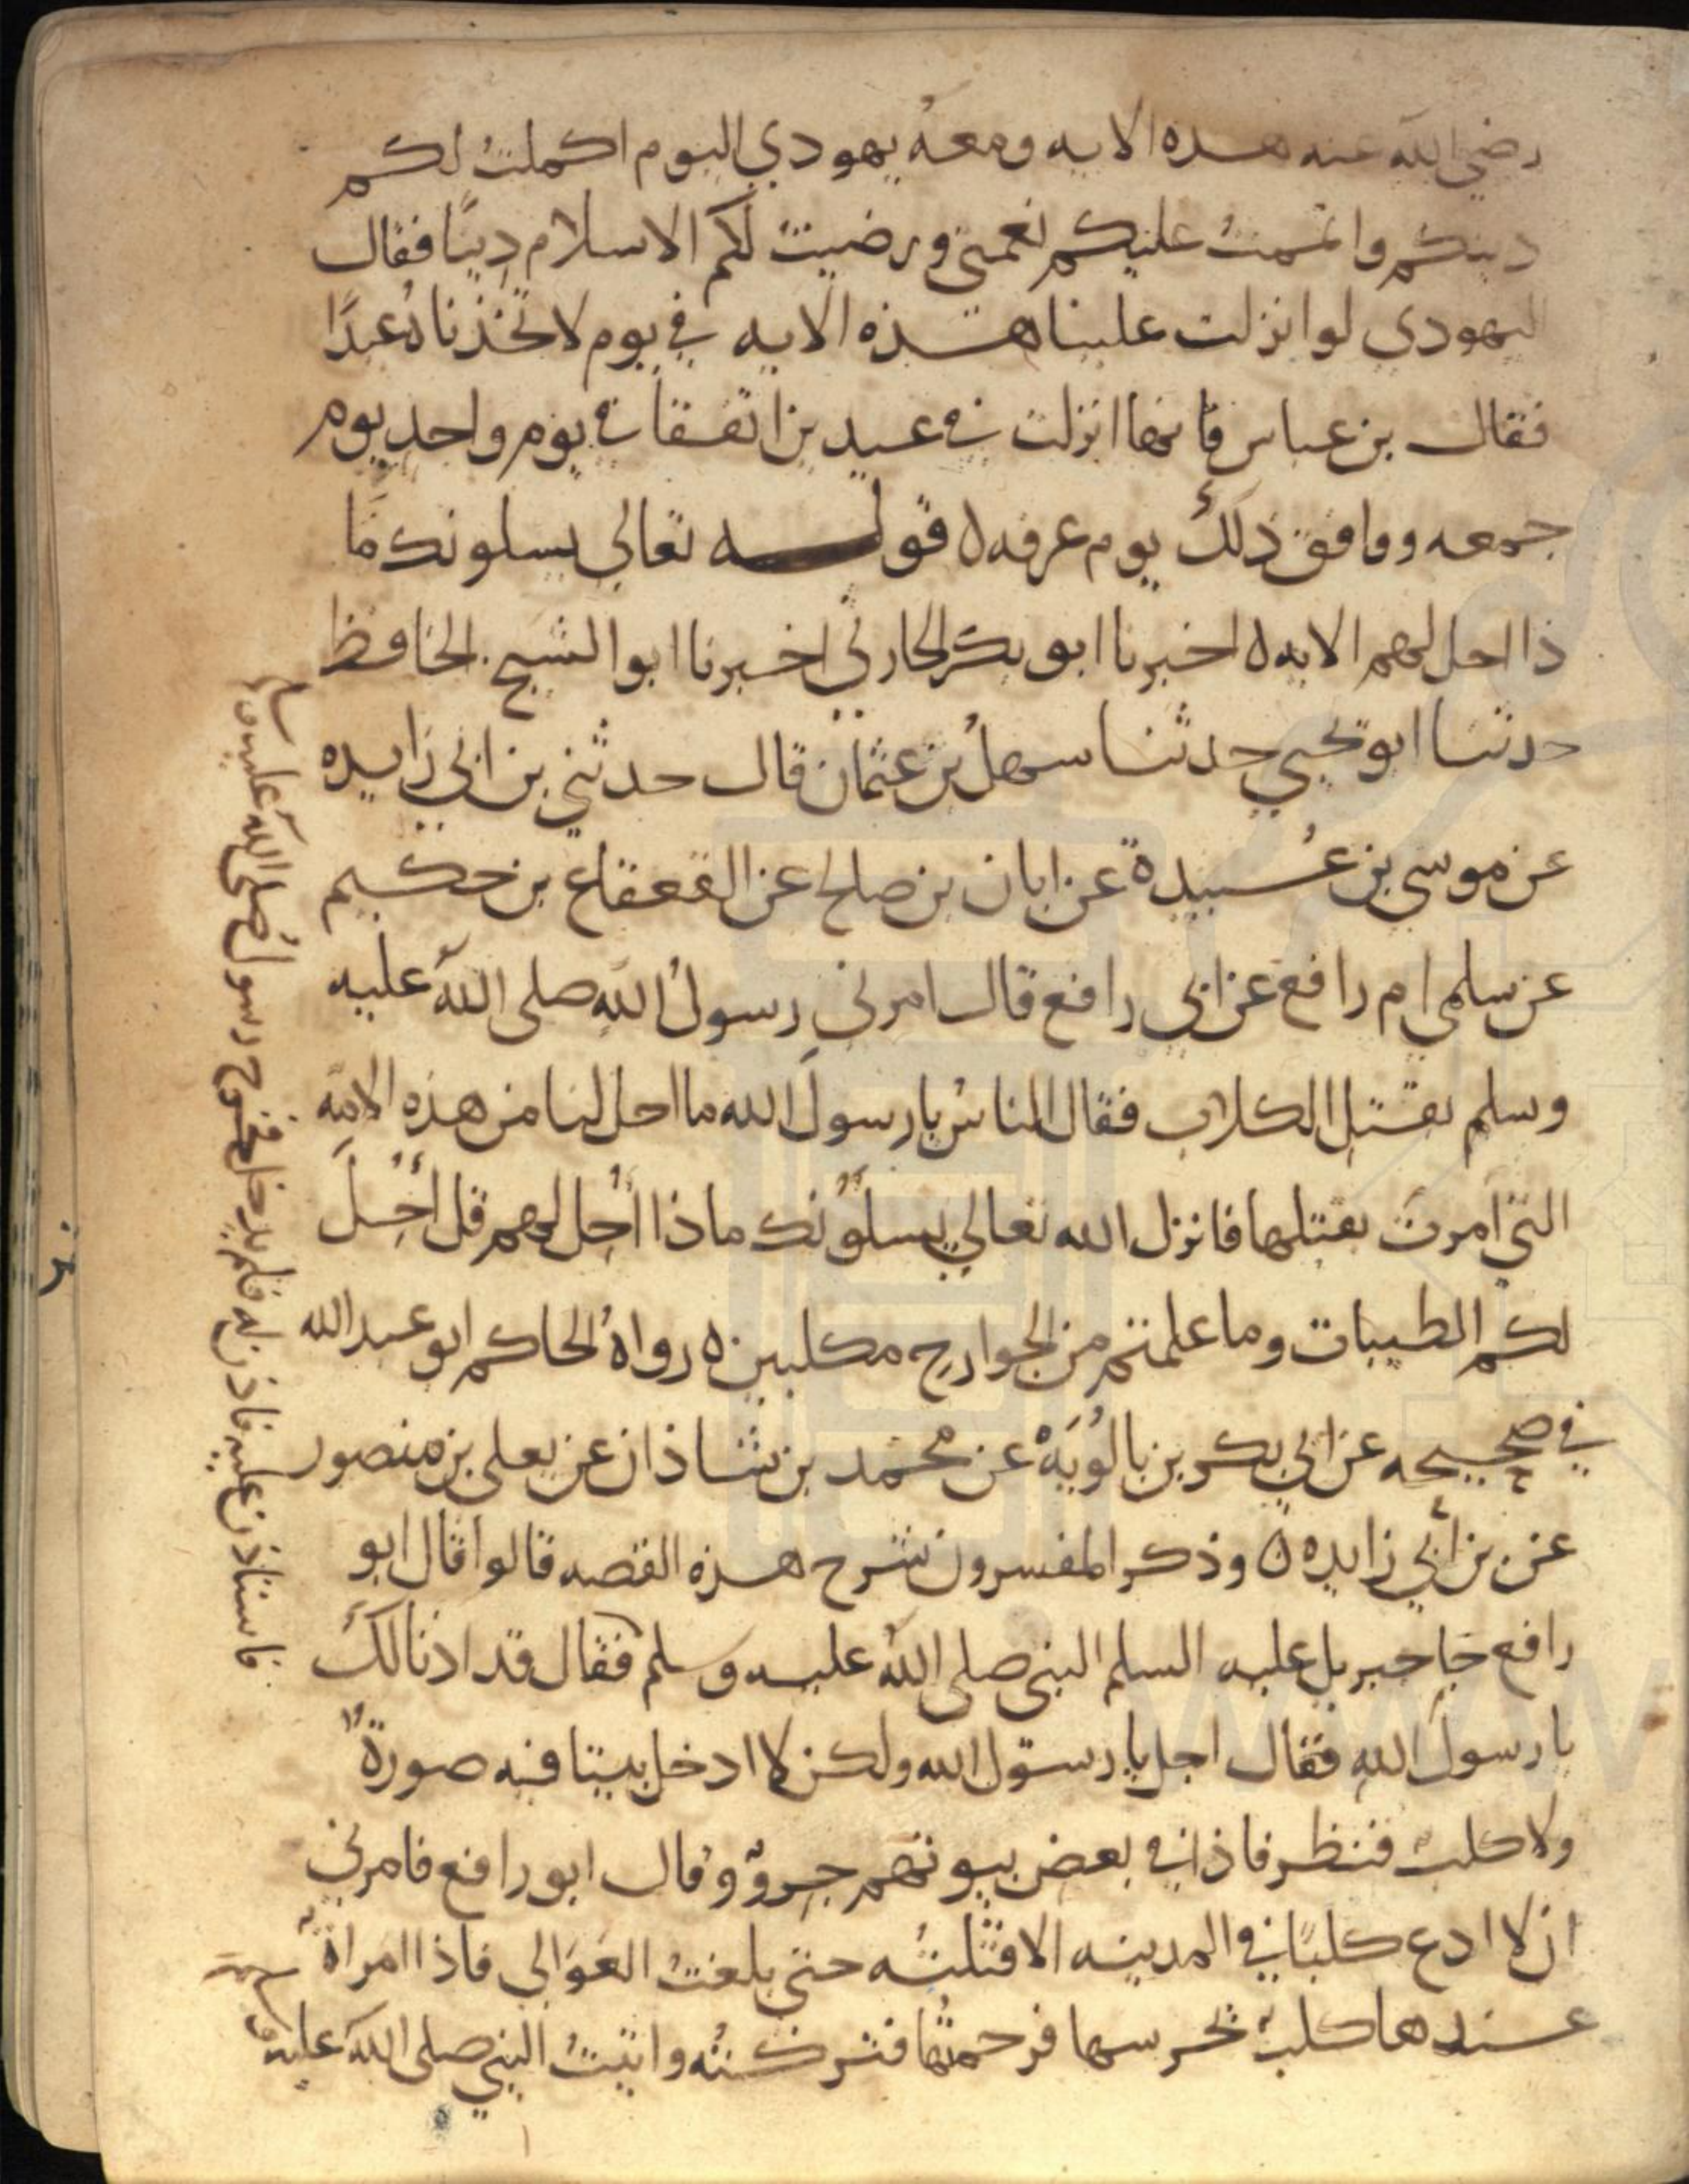 رضي الله عنه هذه الايه ومعه يهودي اليوم اكملت لكم
دينكم واتممت عليكم نعمتي ورضيت لكم الاسلام دينًا فقال
اليهودي لو انزلت علينا هذه الايه في يوم لاتخذناه عيدًا
فقال بن عباس فانها انزلت في عيدين اتفقا في يوم واحد يوم
جمعه ووافق ذلك يوم عرفه ه قوله تعالى يسلونك ما
ذا احل لهم الايه ه اخبرنا ابو بكر الحارثي اخبرنا ابو الشيخ الحافظ
حدثنا ابو يحيي حدثنا سهلُ بن عثمان قال حدثني بن ابي زايده
عن موسى بن عُبيدة عن ابان بن صالح عن القعقاع بن حكيم
عن سلمى ام رافع عن ابي رافع قال امرني رسولُ الله صلى الله عليه
وسلم بقتل الكلاب فقال الناسُ يا رسولَ الله ما احل لنا من هذه الامّه
التي امرتَ بقتلها فانزل الله تعالي يسلُونك ماذا اُحِل لهم قل اُحِلَّ
لكم الطيبات وما علمتم من الجوارح مكلبين ه رواهُ الحاكم ابو عبد الله
في صحيحه عن ابي بكر بن بالُويَهْ عن محمد بن شاذان عن يعلى بن منصور
عن بن أبي زايده ه وذكر المفسرون شرح هذه القصه قالوا قال ابو
رافع جا جبريل عليه السلم النبي صلى الله عليه وسلم فقال قد اذنا لك
يا رسولَ الله فقال اجل يا رسول الله ولكن لا ادخل بيتا فيه صورةٌ
ولا كلبٌ فنظر فاذا في بعض بيوتهم جروٌ وقال ابو رافع فامرني
ان لا ادع كلبًا في المدينه الا قتلتُه حتى بلغتُ العَوَالي فاذا امراةٌ
عندها كلبٌ يحرسها فرحمتُها فتركتُه واتيتُ النبي صلى الله عليه وسلم
فاستاذن عليه فاذن له فلم يدخل فخرج رسولُ الله صلى الله عليه وسلم